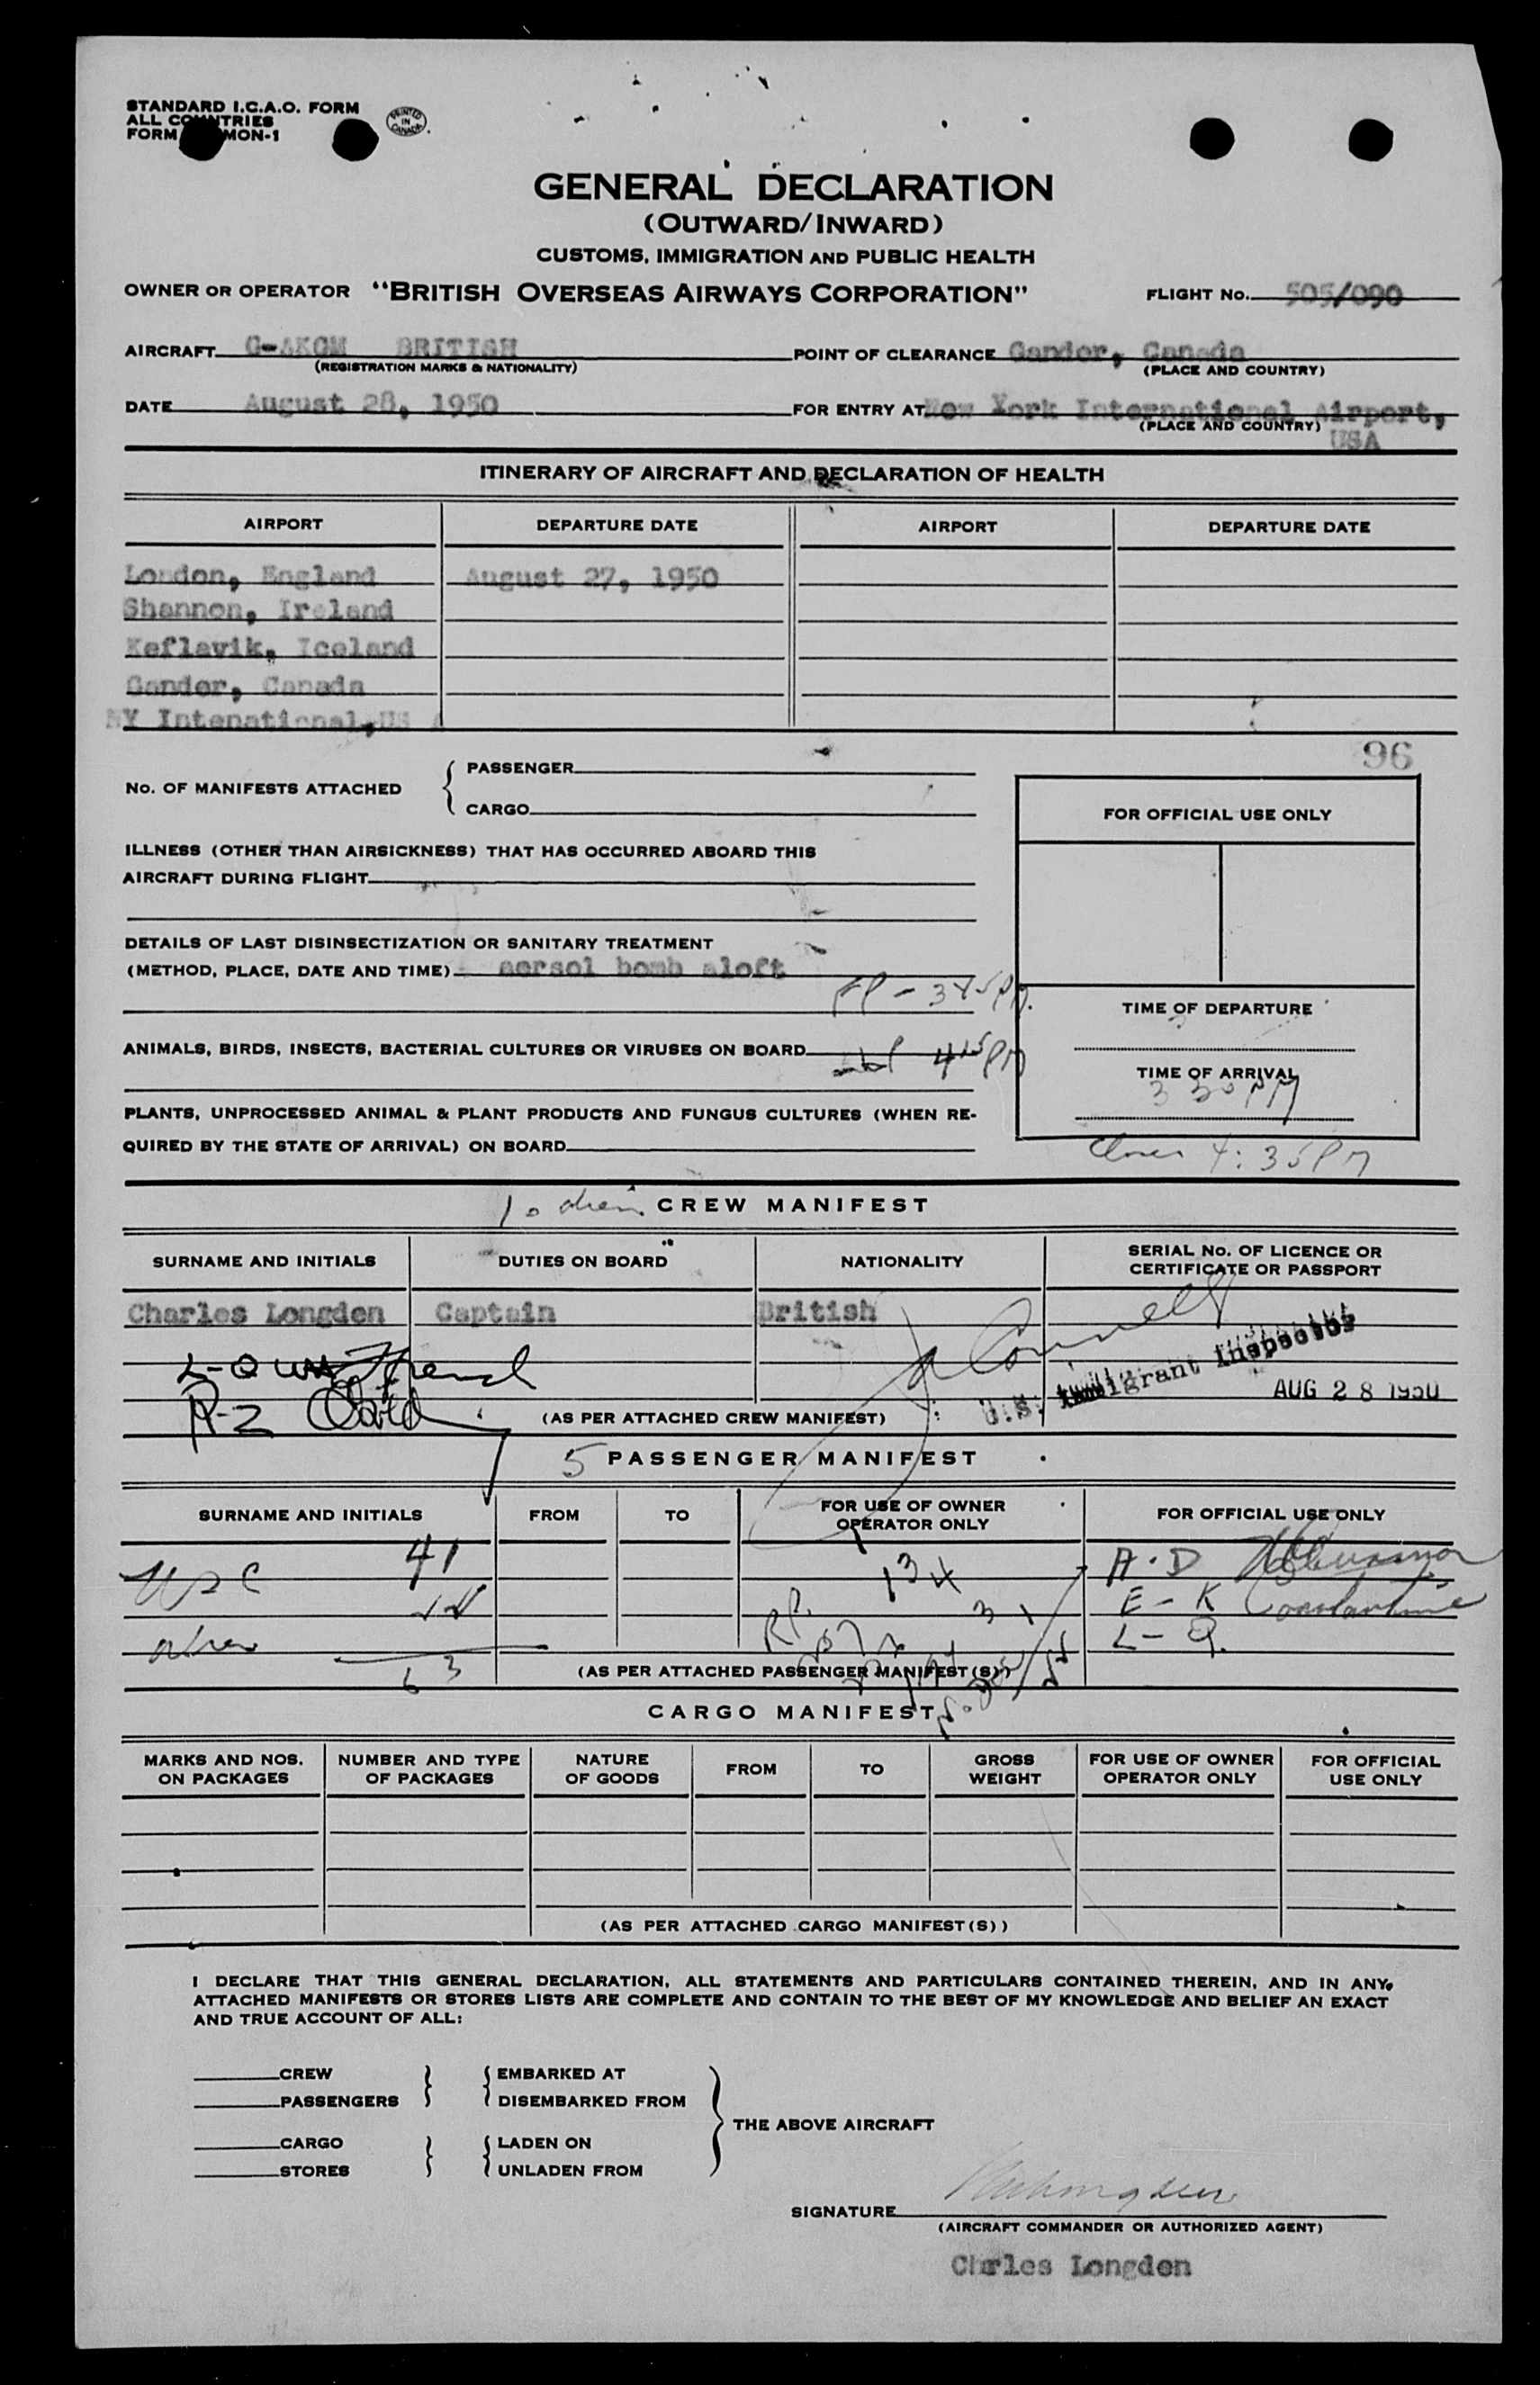 STANDARD I.C.A.O. FORM
ALL COUNTRIES
FORM MON-1
PRINTED IN CANADA
GENERAL DECLARATION
(OUTWARD/INWARD)
CUSTOMS, IMMIGRATION AND PUBLIC HEALTH
OWNER OR OPERATOR "BRITISH OVERSEAS AIRWAYS CORPORATION" FLIGHT No. 505/090
AIRCRAFT G-AKGM BRITISH POINT OF CLEARANCE Gander, Canada
(REGISTRATION MARKS & NATIONALITY) (PLACE AND COUNTRY)
DATE August 28, 1950 FOR ENTRY AT New York International Airport,
(PLACE AND COUNTRY) USA
ITINERARY OF AIRCRAFT AND DECLARATION OF HEALTH
AIRPORT DEPARTURE DATE AIRPORT DEPARTURE DATE
London, England August 27, 1950
Shannon, Ireland
Keflavik, Iceland
Gander, Canada
NY Intenational,US A
96
No. OF MANIFESTS ATTACHED { PASSENGER
CARGO
FOR OFFICIAL USE ONLY
ILLNESS (OTHER THAN AIRSICKNESS) THAT HAS OCCURRED ABOARD THIS
AIRCRAFT DURING FLIGHT
DETAILS OF LAST DISINSECTIZATION OR SANITARY TREATMENT
(METHOD, PLACE, DATE AND TIME) aersol bomb aloft
FP - 345PM.
TIME OF DEPARTURE
ANIMALS, BIRDS, INSECTS, BACTERIAL CULTURES OR VIRUSES ON BOARD 415PM
TIME OF ARRIVAL
3 30 PM
PLANTS, UNPROCESSED ANIMAL & PLANT PRODUCTS AND FUNGUS CULTURES (WHEN RE-
QUIRED BY THE STATE OF ARRIVAL) ON BOARD
4:35PM
10 CREW MANIFEST
SURNAME AND INITIALS DUTIES ON BOARD NATIONALITY SERIAL No. OF LICENCE OR
CERTIFICATE OR PASSPORT
Charles Longden Captain British
U.S. Immigrant Inspector
AUG 28 1950
R-Z
(AS PER ATTACHED CREW MANIFEST)
5 PASSENGER MANIFEST
SURNAME AND INITIALS FROM TO FOR USE OF OWNER
OPERATOR ONLY FOR OFFICIAL USE ONLY
USC 41 134 A-D
E-K Constantine
L-Q.
63
(AS PER ATTACHED PASSENGER MANIFEST(S))
CARGO MANIFEST
MARKS AND NOS.
ON PACKAGES NUMBER AND TYPE
OF PACKAGES NATURE
OF GOODS FROM TO GROSS
WEIGHT FOR USE OF OWNER
OPERATOR ONLY FOR OFFICIAL
USE ONLY
(AS PER ATTACHED CARGO MANIFEST(S))
I DECLARE THAT THIS GENERAL DECLARATION, ALL STATEMENTS AND PARTICULARS CONTAINED THEREIN, AND IN ANY
ATTACHED MANIFESTS OR STORES LISTS ARE COMPLETE AND CONTAIN TO THE BEST OF MY KNOWLEDGE AND BELIEF AN EXACT
AND TRUE ACCOUNT OF ALL:
CREW } { EMBARKED AT
PASSENGERS } { DISEMBARKED FROM
THE ABOVE AIRCRAFT
CARGO } { LADEN ON
STORES } { UNLADEN FROM
SIGNATURE
(AIRCRAFT COMMANDER OR AUTHORIZED AGENT)
Chrles Longden